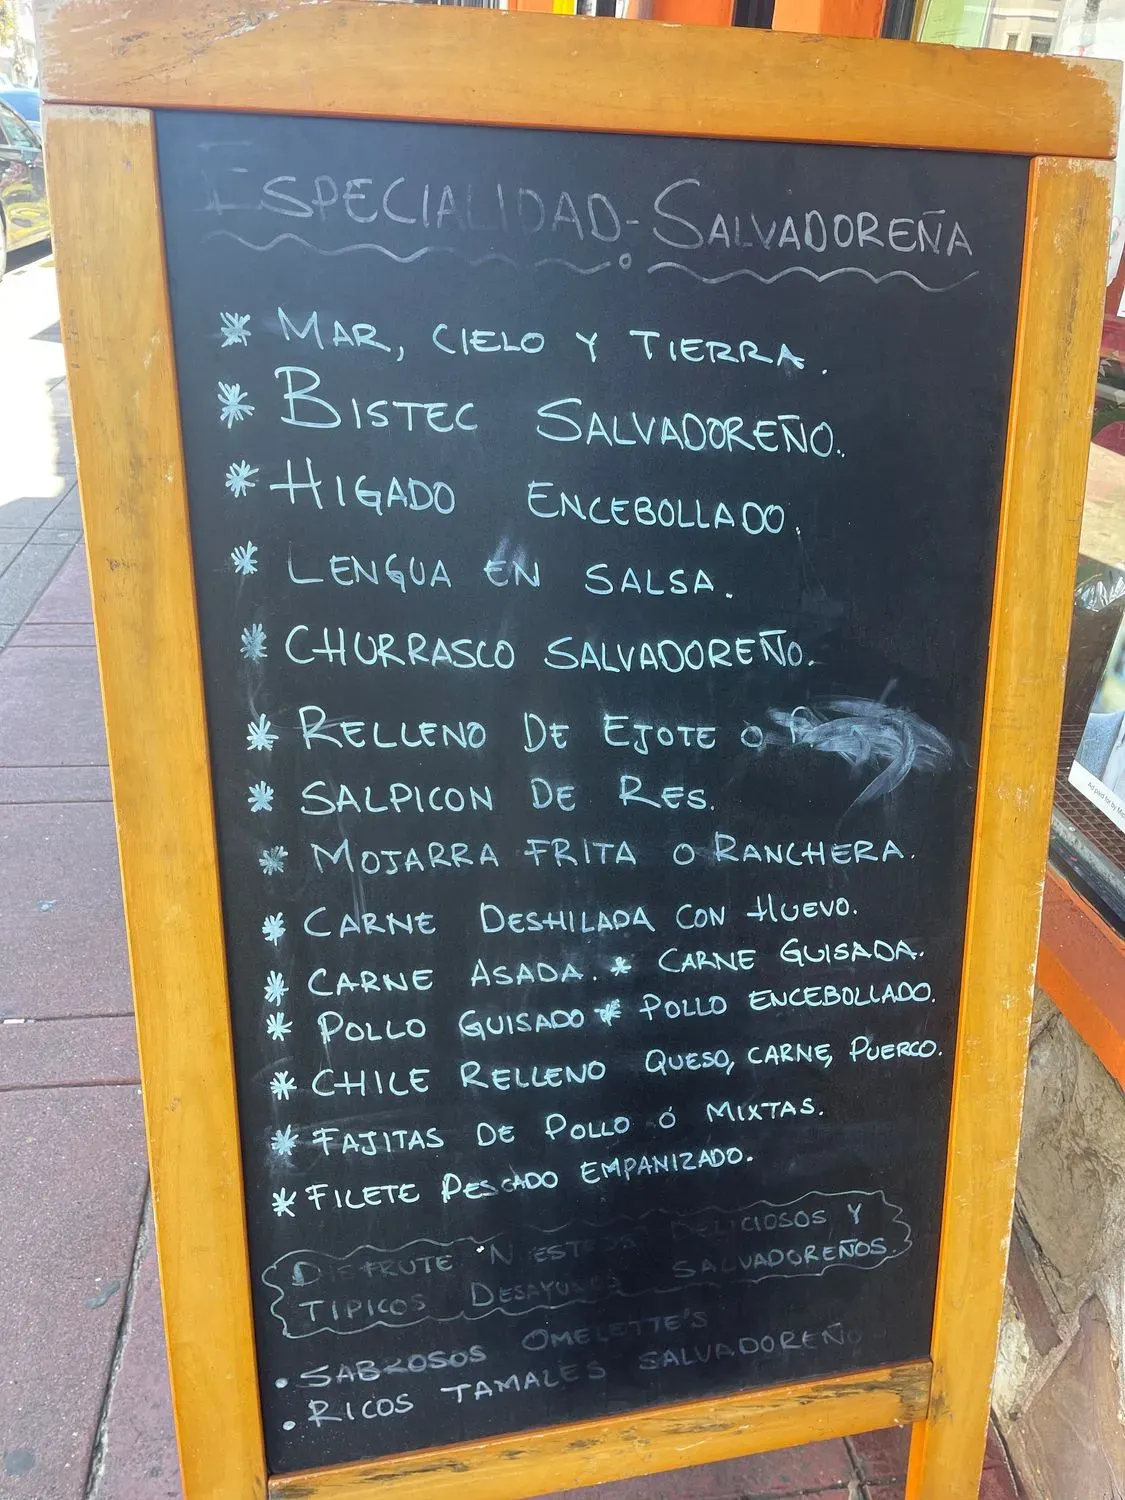 ESPECIALIDAD-SALVADOREÑA
* MAR, CIELO Y TIERRA.
* BISTEC SALVADOREÑO.
* HIGADO ENCEBOLLADO.
* LENGUA EN SALSA.
* CHURRASCO SALVADOREÑO.
* RELLENO DE EJOTE O
* SALPICON DE RES.
* MOJARRA FRITA O RANCHERA.
* CARNE DESHILADA CON HUEVO.
* CARNE ASADA. * CARNE GUISADA.
* POLLO GUISADO * POLLO ENCEBOLLADO.
* CHILE RELLENO QUESO, CARNE, PUERCO.
* FAJITAS DE POLLO Ó MIXTAS.
* FILETE PESCADO EMPANIZADO.
DISFRUTE NUESTROS DELICIOSOS Y
TIPICOS DESAYUNOS SALVADOREÑOS.
• SABROSOS OMELETTE'S
• RICOS TAMALES SALVADOREÑO